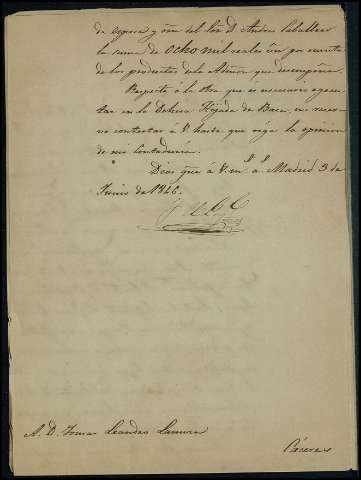 de espera y orn del Sor D. Andres Caballero
la suma de ocho mil reales vn por cuenta
de los productos de la Admon que desempeña.
Respecto á la obra que es necesario ejecu-
tar en la Dehesa Hijada de Baca, me reser-
vo contestar á V. hasta que oiga la opinion
de mi Contaduria.
Dios gue á V. ms. as. Madrid 3 de
Junio de 1846.
A. D. Tomas Leandro Lamura
Cáceres